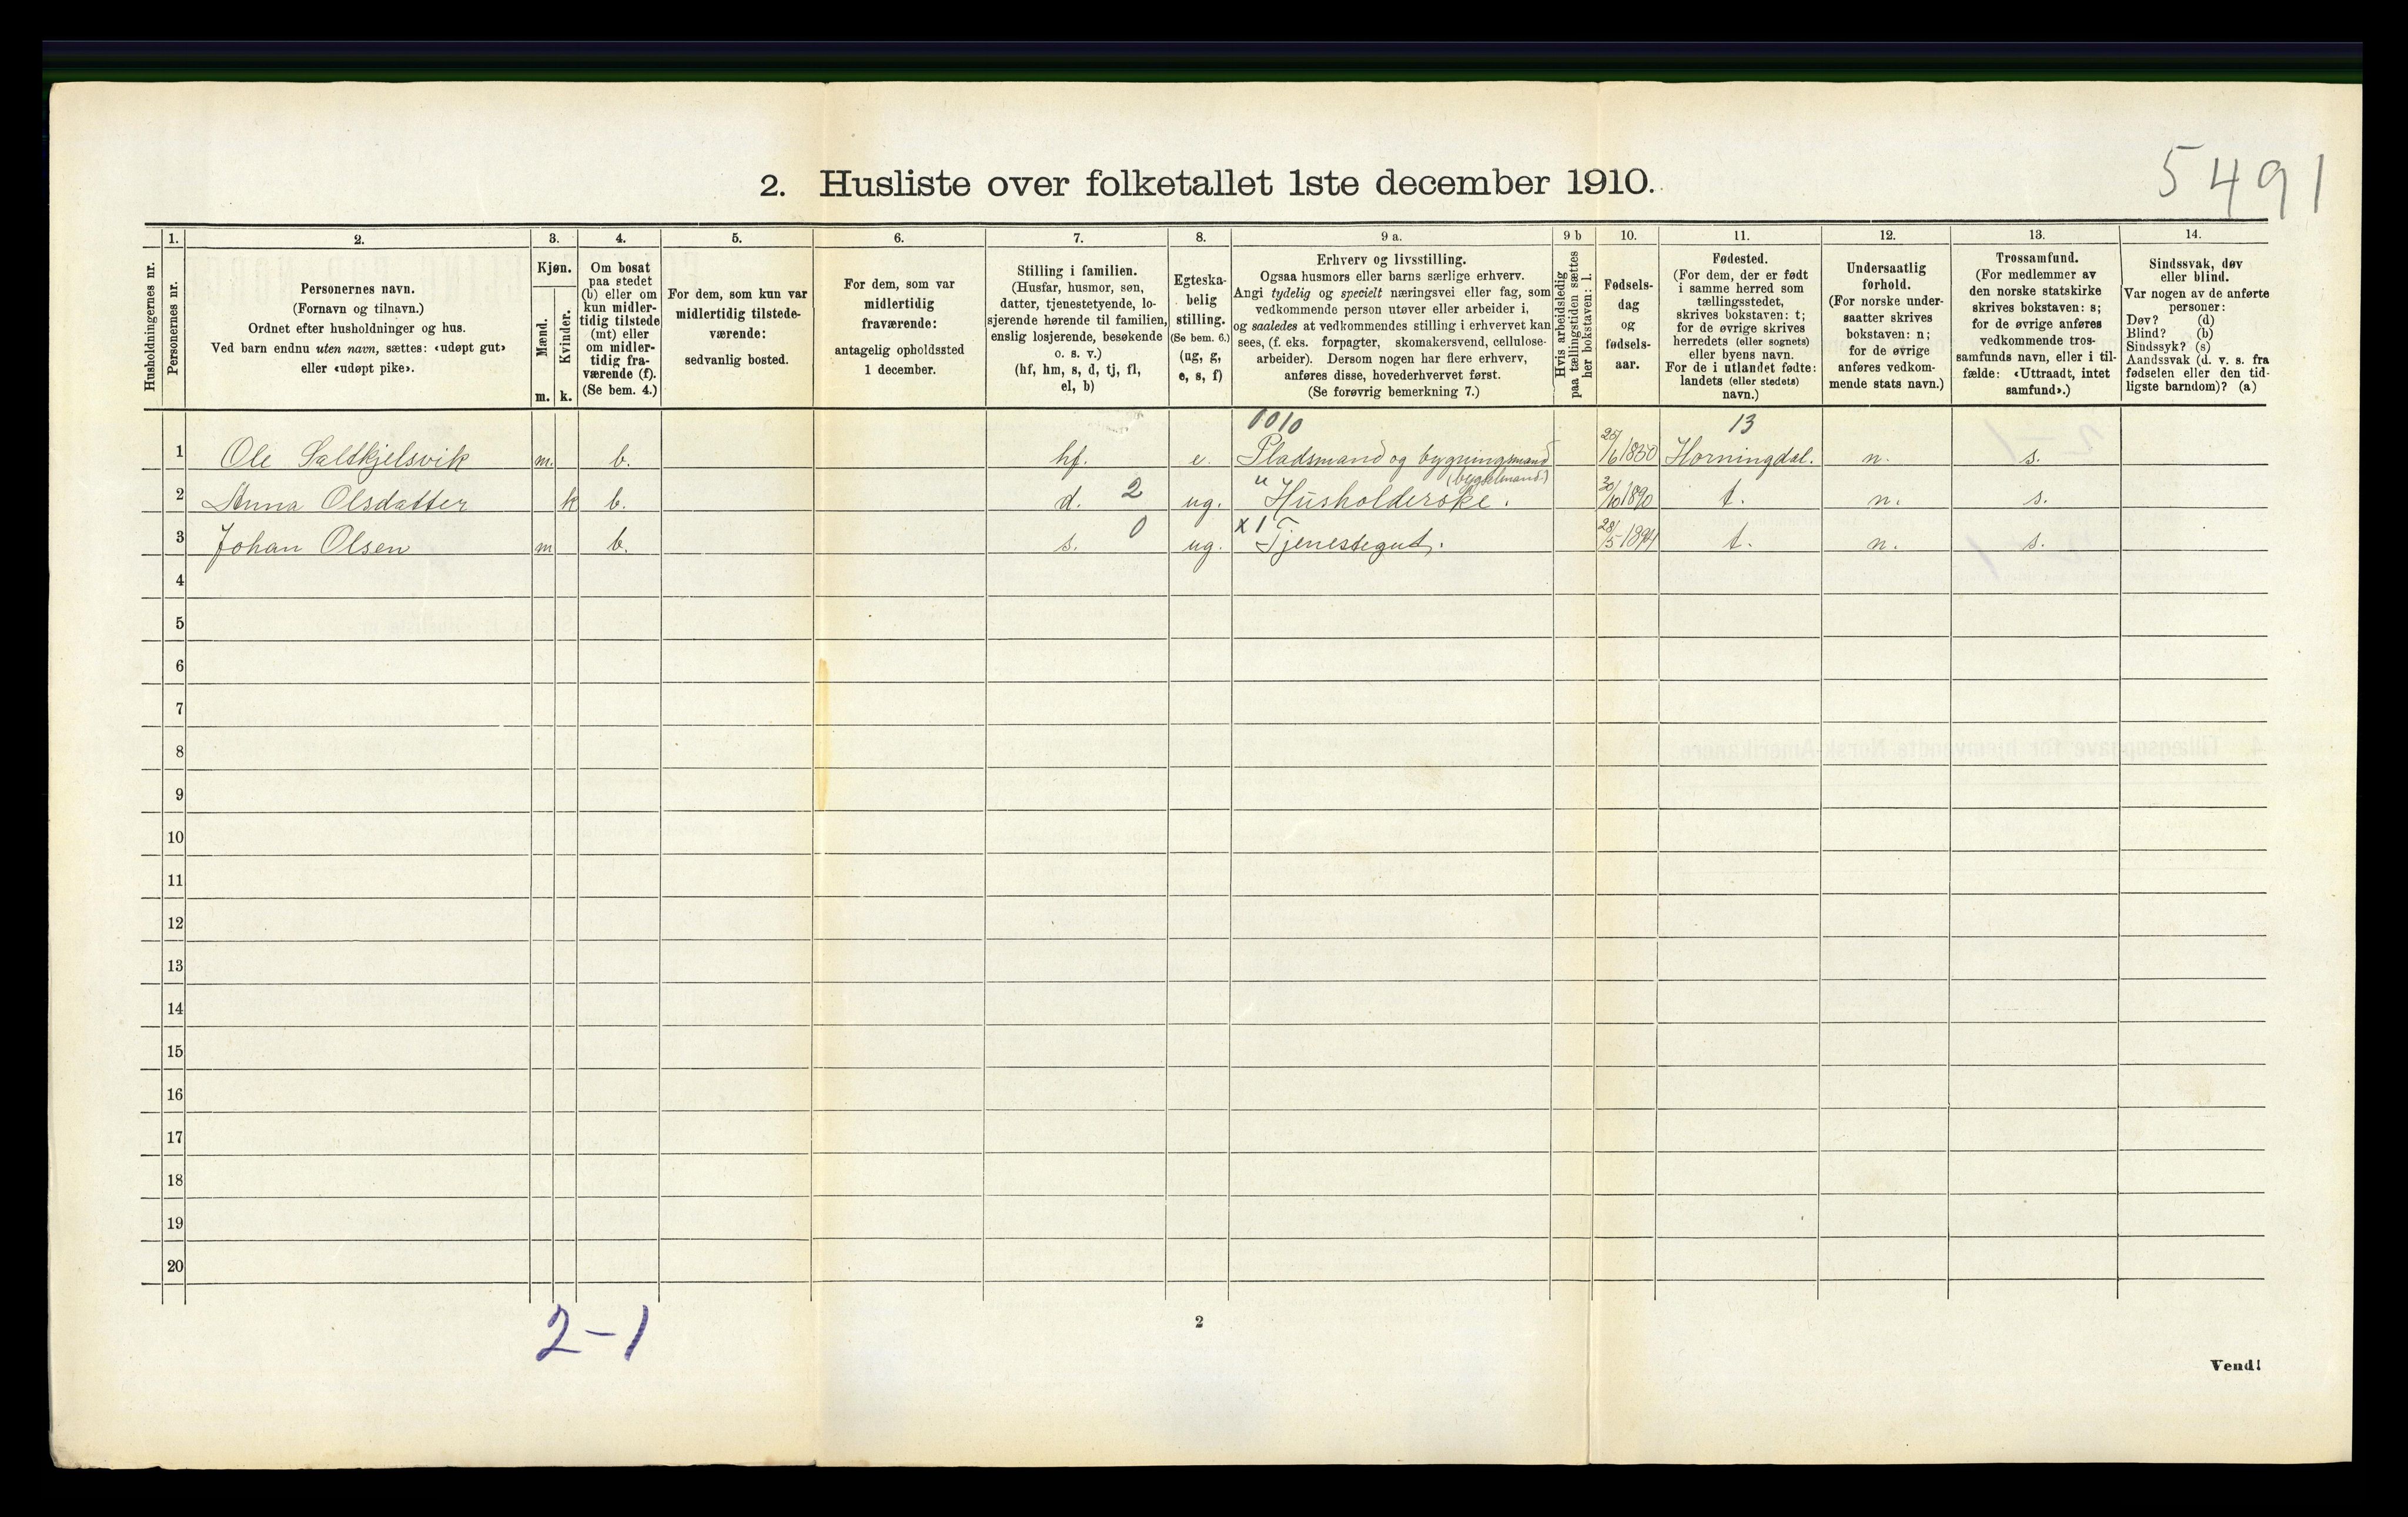 5491
2. Husliste over folketallet 1ste december 1910.
Husholdningernes nr.
1.
Personernes nr.
2.
Personernes navn.
(Fornavn og tilnavn.)
Ordnet efter husholdninger og hus.
Ved barn endnu uten navn, sættes: «udøpt gut»
eller «udøpt pike».
3.
Kjøn.
Mænd.
Kvinder.
m. k.
4.
Om bosat
paa stedet
(b) eller om
kun midler-
tidig tilstede
(mt) eller
om midler-
tidig fra-
værende (f).
(Se bem. 4.)
5.
For dem, som kun var
midlertidig tilstede-
værende:
sedvanlig bosted.
6.
For dem, som var
midlertidig
fraværende:
antagelig opholdssted
1 december.
7.
Stilling i familien.
(Husfar, husmor, søn,
datter, tjenestetyende, lo-
sjerende hørende til familien,
enslig losjerende, besøkende
o. s. v.)
(hf, hm, s, d, tj, fl,
el, b)
8.
Egteska-
belig
stilling.
(Se bem. 6.)
(ug, g,
e, s, f)
9 a.
Erhverv og livsstilling.
Ogsaa husmors eller barns særlige erhverv.
Angi tydelig og specielt næringsvei eller fag, som
vedkommende person utøver eller arbeider i,
og saaledes at vedkommendes stilling i erhvervet kan
sees, (f. eks. forpagter, skomakersvend, cellulose-
arbeider). Dersom nogen har flere erhverv,
anføres disse, hovederhvervet først.
(Se forøvrig bemerkning 7.)
9 b
Hvis arbeidsledig
paa tællingstiden sættes
her bokstaven: l.
10.
Fødsels-
dag
og
fødsels-
aar.
11.
Fødested.
(For dem, der er født
i samme herred som
tællingsstedet,
skrives bokstaven: t;
for de øvrige skrives
herredets (eller sognets)
eller byens navn.
For de i utlandet fødte:
landets (eller stedets)
navn.)
12.
Undersaatlig
forhold.
(For norske under-
saatter skrives
bokstaven: n;
for de øvrige
anføres vedkom-
mende stats navn.)
13.
Trossamfund.
(For medlemmer av
den norske statskirke
skrives bokstaven: s;
for de øvrige anføres
vedkommende tros-
samfunds navn, eller i til-
fælde: «Uttraadt, intet
samfund».)
14.
Sindssvak, døv
eller blind.
Var nogen av de anførte
personer:
Døv? (d)
Blind? (b)
Sindssyk? (s)
Aandssvak (d. v. s. fra
fødselen eller den tid-
ligste barndom)? (a)
0010 13
1 Ole Saltkjelsvik m. b. hf. e. Pladsmand og bygningsmand 25/6 1850 Horningdal. n. s.
(bygselmand)
2 Anna Olsdatter k b. d. 2 ug. " Husholderske. 30/10 1890 t. n. s.
3 Johan Olsen m b. s. 0 ug. x 1 Tjenestegut. 28/5 1894 t. n. s.
4
5
6
7
8
9
10
11
12
13
14
15
16
17
18
19
20
2-1
2
Vend!